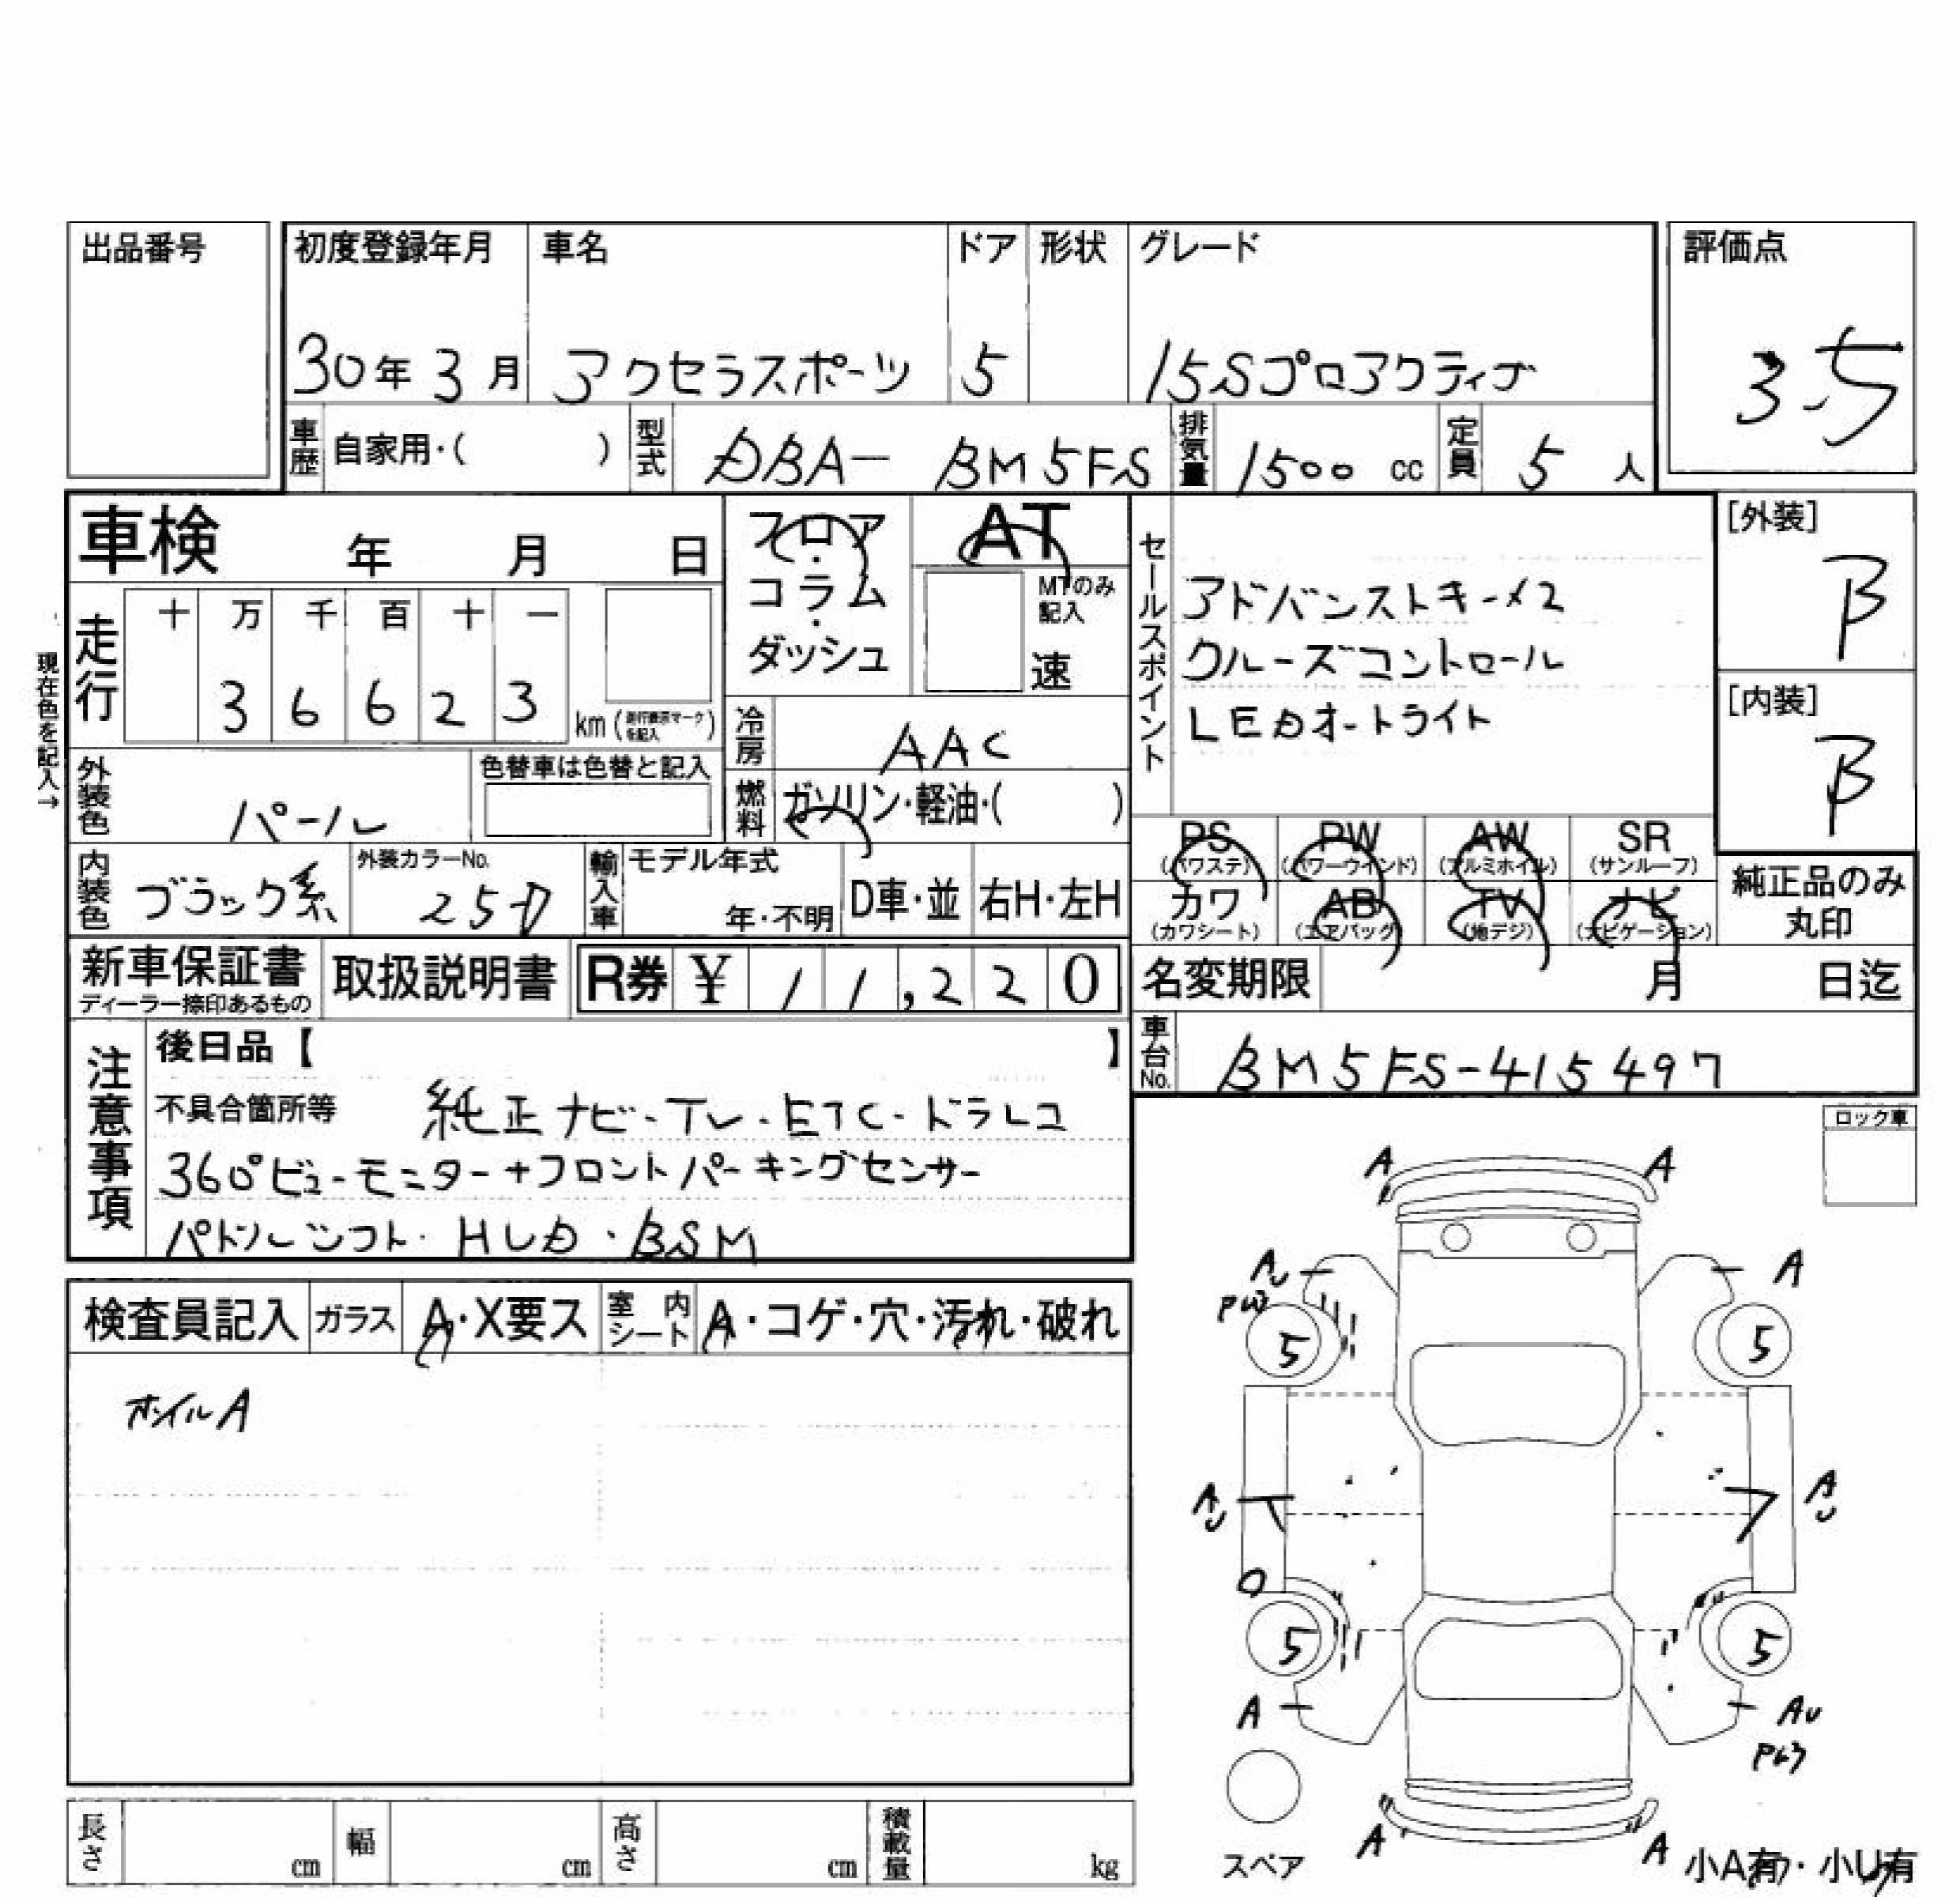 出品番号
初度登録年月 車名 ドア 形状 グレード 評価点
30年3月 アクセラスポーツ 5 15Sプロアクティブ 3.5
車歴 自家用・( ) 型式 DBA-BM5FS 排気量 1500cc 定員 5人
車検 年 月 日
フロア・コラム・ダッシュ
AT
MTのみ記入
速
セールスポイント
アドバンストキー×2
クルーズコントロール
LEDオートライト
[外装]
B
[内装]
B
現在色を記入→
走行 十 万 千 百 十 一
3 6 6 2 3 km(走行表示マークを記入)
冷房 AAC
外装色 パール 色替車は色替と記入
燃料 ガソリン・軽油・( )
内装色 ブラック系 外装カラーNo. 25D
輸入車 モデル年式 年・不明 D車・並 右H・左H
PS (パワステ) PW (パワーウインド) AW (アルミホイル) SR (サンルーフ)
カワ (カワシート) AB (エアバッグ) TV (地デジ) ナビ (ナビゲーション)
純正品のみ丸印
新車保証書 ディーラー捺印あるもの 取扱説明書 R券 ¥11,220
名変期限 月 日迄
車台No. BM5FS-415497
注意事項
後日品【 】
不具合箇所等 純正ナビ・TV・ETC・ドラレコ
360°ビューモニター+フロントパーキングセンサー
パドルシフト・HUD・BSM
ロック車
検査員記入 ガラス A・X要ス 室内シート A・コゲ・穴・汚れ・破れ
ホイルA
A A
AU A
PW3
5 5
AU AU
5 5
A AU
PW3
スペア
A A
小A有・小U有
長さ cm 幅 cm 高さ cm 積載量 kg